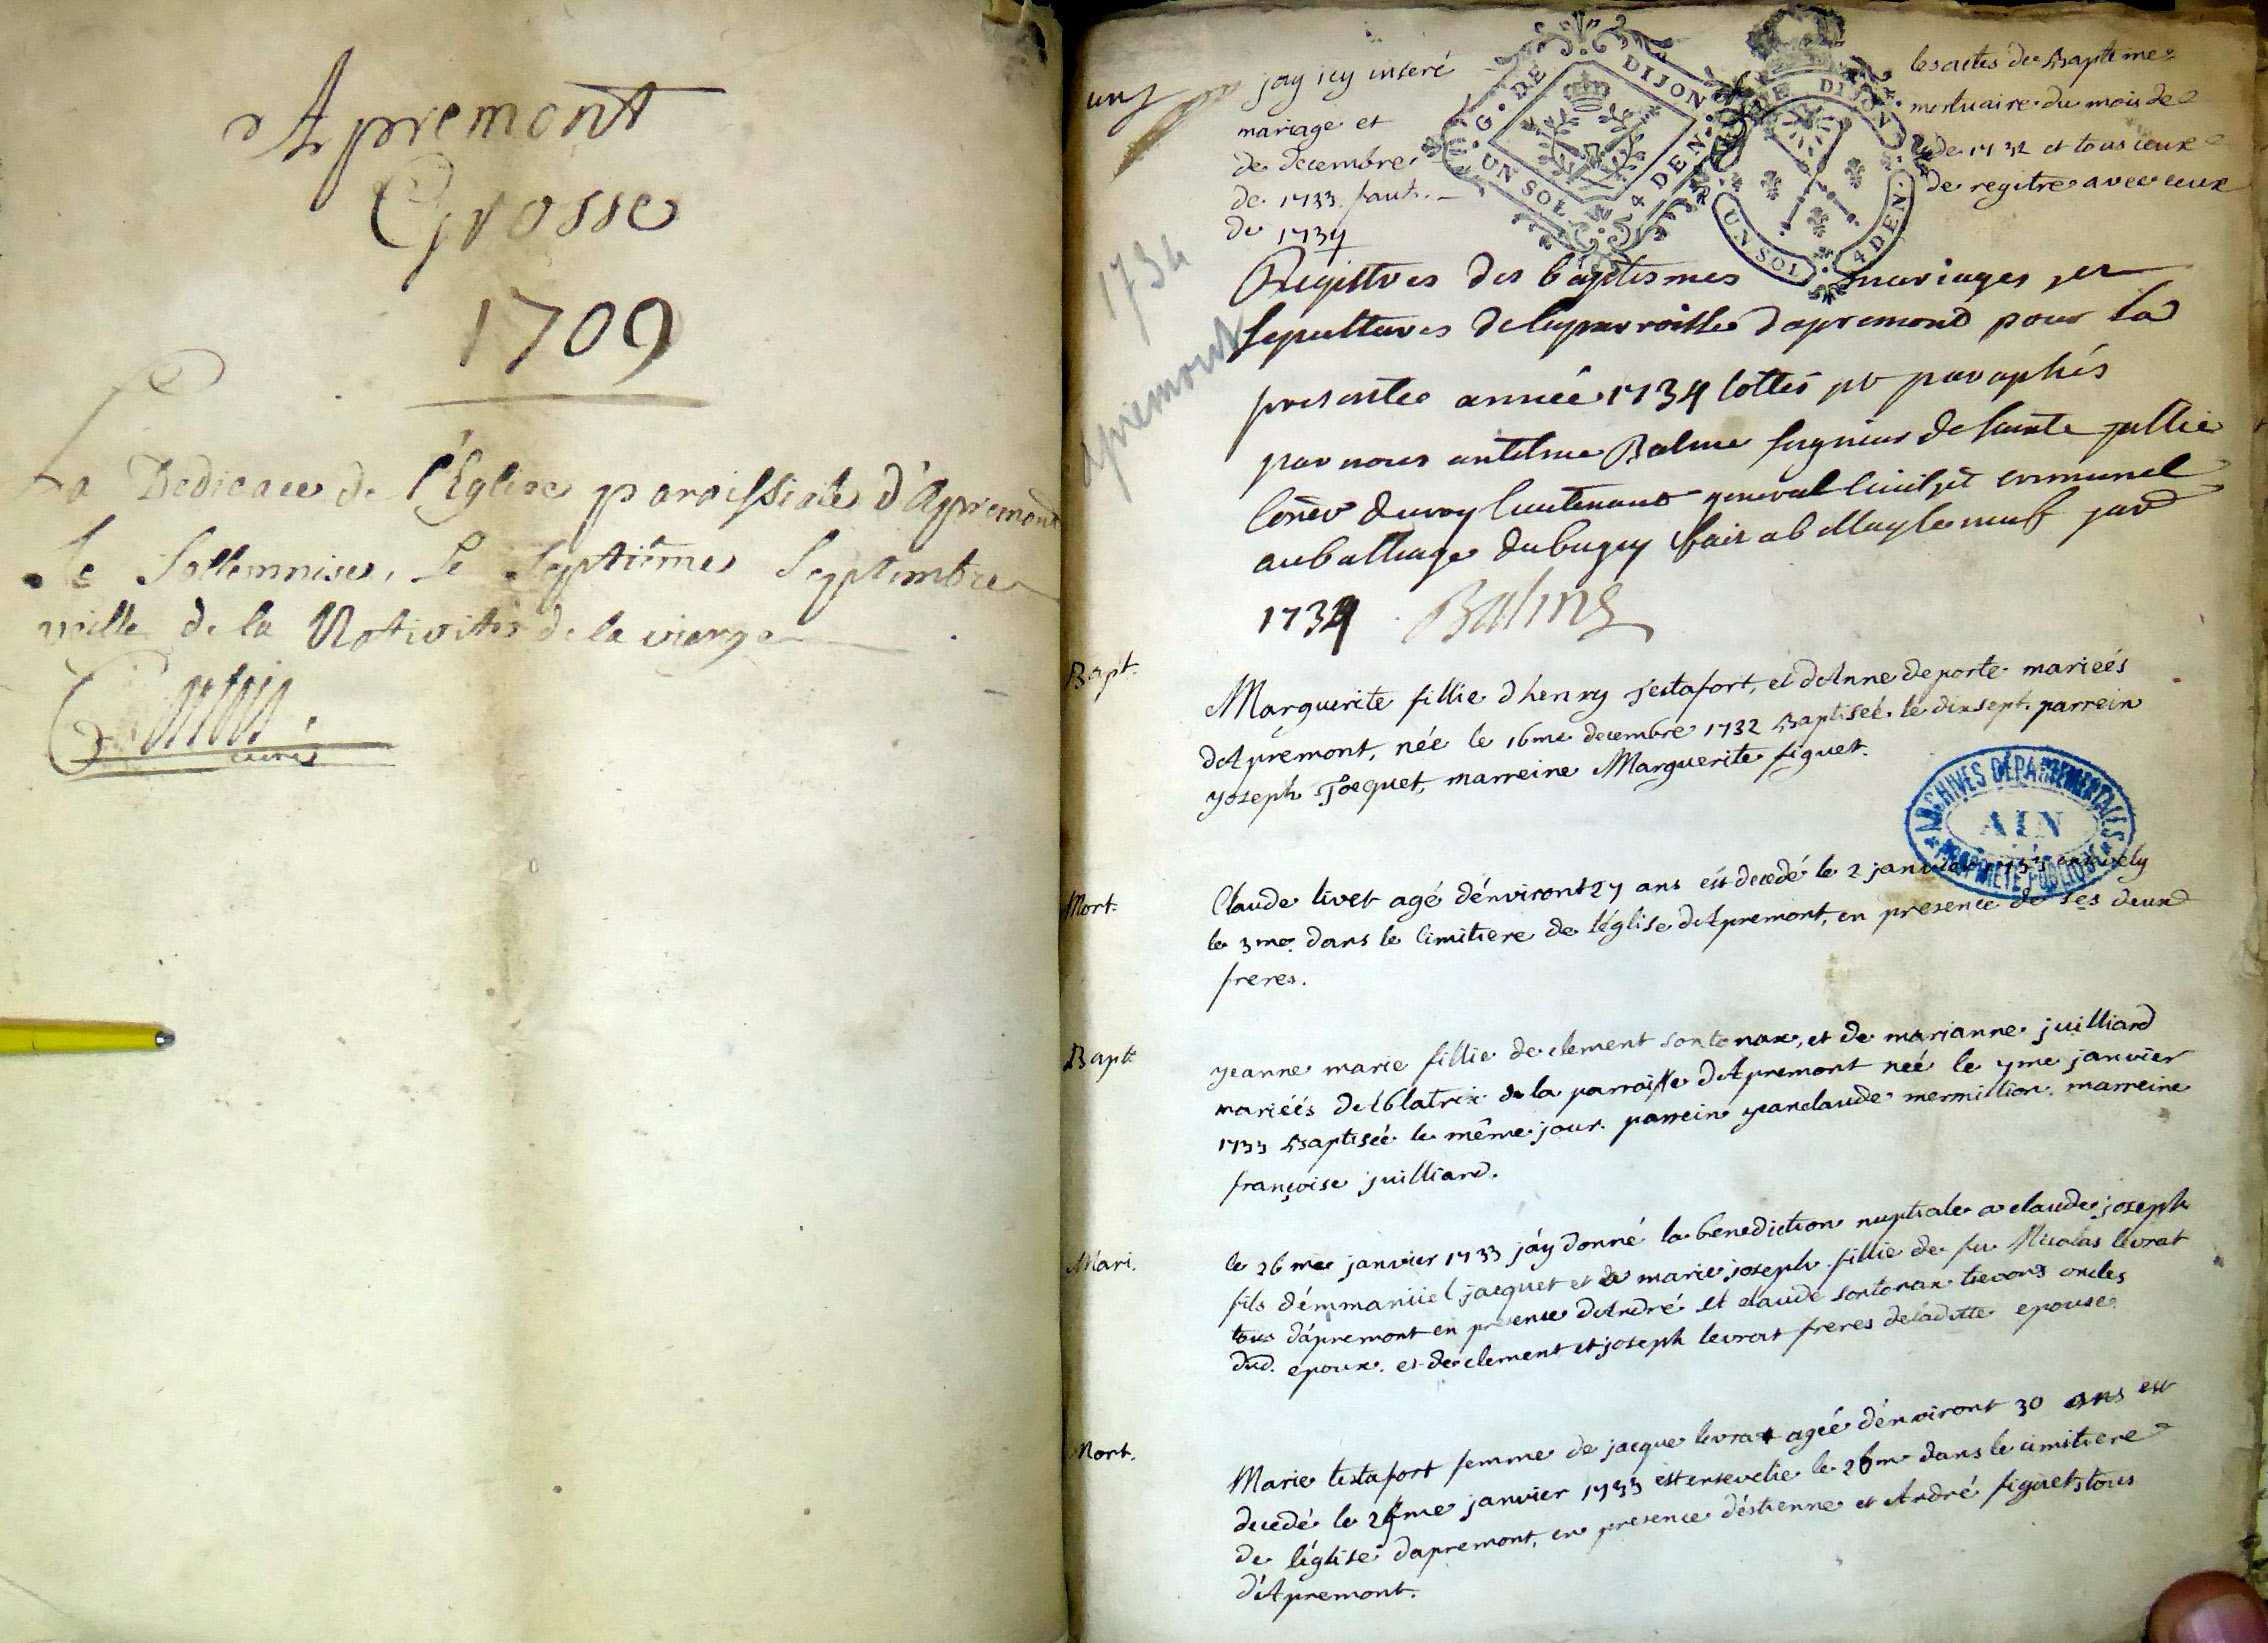 Apremont
Grosse
1709
La Dedicace de l'Eglise paroissiale d'Apremont
se sollemnise, le septième septembre
veille de la Nativité de la vierge
curé
un
jay icy inseré les actes de Baptime
mariage et mortuaire du mois de
de decembre de 1732 et tous ceux
de 1733 faut de regitre avec ceux
de 1734
G. DE DIJON
UN SOL 4 DEN.
DIJON
UN SOL 4 DEN.
1734
apremont
Registres des baptesmes mariages et
sepultures de la parroisse dapremond pour la
presente année 1734 cottés et paraphés
par nous antelme Balme seigneur de Sainte jullie
coner du roy lieutenant general civil et criminel
au balliage du bugey fait a bellay le neuf
1734 Balme
Bapt.
Marguerite fillie dhenry testafort, et dAnne deporte mariéés
dApremont, née le 16me decembre 1732 Baptiséé le dixsept. parrein
joseph Jocquet, marreine Marguerite figuet.
ARCHIVES DÉPARTEMENTALES
AIN
PROPRIÉTÉ PUBLIQUE
Mort.
Claude livet agé dénviront 27 ans est decedé le 2 janvier 1733 ensevely
le 3me. dans le cimitiere de léglise dApremont, en presence de ses deux
freres.
Bapt.
jeanne marie fillie de clement sontonax, et de marianne juilliard
mariéés de lablatrix de la parroisse dApremont néé le 7me janvier
1733 Baptiséé le même jour. parrein jeanclaude mermillion. marreine
françoise juilliard.
Mari.
le 26me janvier 1733 jáy donné la benediction nuptiale a claude joseph
fils démmanüel jacquet et a marie joseph fillie de feu Nicolas levrat
tous dápremont en presence dAndré et claude sontonax oncles
dud. epoux. et de clement et joseph levrat freres deladitte epouse
Mort.
Marie testafort femme de jacque levrat agéé dénviront 30 ans est
decedé le janvier 1733 est ensevelie le 26me dans le cimitiere
de léglise dapremont, en presence déstienne et André figuets tous
d'Apremont.